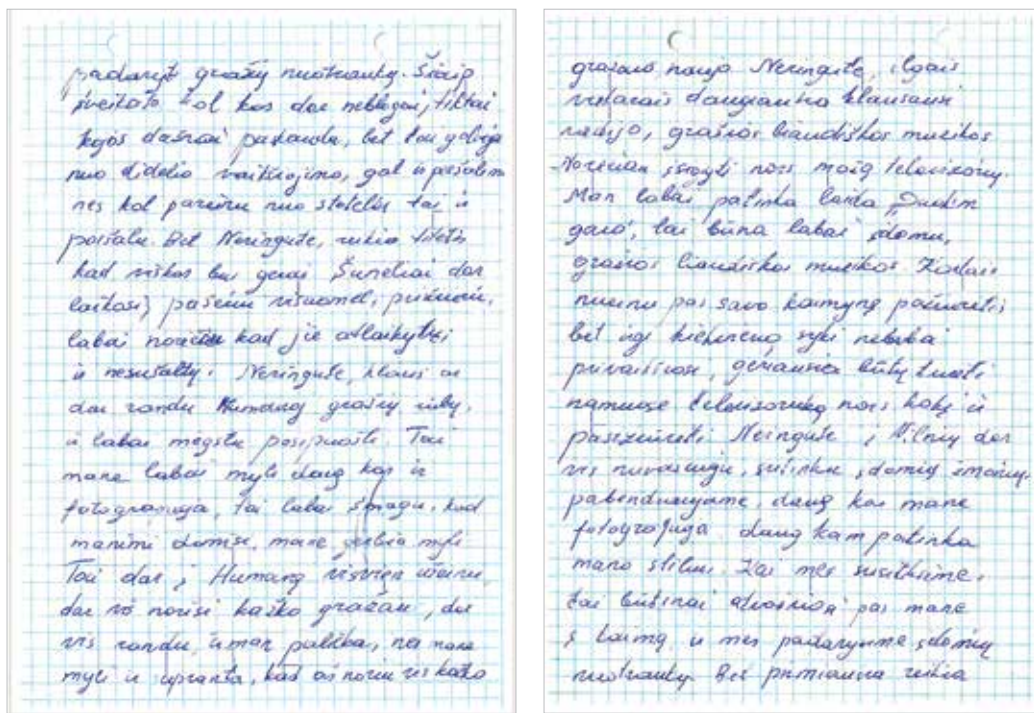 padaryt gražių nuotraukų. Šiaip
sveikata tol kas dar neblogai, tiktai
kojos dažnai paskauda, bet tai galbūt
nuo didelio vaikščiojimo, gal ir peršalim
nes kol pareinu nuo stotelės tai ir
peršalu. Bet Neringute, reikia tikėtis
kad viskas bus gerai. Šuneliai dar
laikosi, pašeriu visuomet, prižiūriu,
labai norėčiau kad jie atlaikytų
ir nesušaltų. Neringute, klausi ar
dar randu Humanoj gražių rūbų,
ir labai mėgstu pasipuošti. Tai
mane labai myli daug kas ir
fotografuoja, tai labai smagu, kad
manimi domisi, mane gerbia myli
Tai dar į Humaną visvien užeinu,
dar vis norisi kažko gražaus, dar
vis randu, ir man palieka, na mane
myli ir supranta, kad aš noriu vis kažko
gražaus naujo Neringute, ilgais
vakarais daugiausia klausausi
radijo, gražios liaudiškos muzikos
Norėčiau įsigyti nors mažą televizorių.
Man labai patinka laida „Duokim
garo", tai būna labai įdomu,
gražios liaudiškos muzikos. Kartais
nueinu pas savo kaimynę pažiūrėti
bet irgi kiekvieną sykį nelabai
privaikščiosi, geriausia būtų turėti
namuose televizoriuką nors kokį ir
pasižiūrėti Neringute į Vilnių dar
vis nuvažiuoju, sutinku įdomių žmonių.
pabendraujame, daug kas mane
fotografuoja daug kam patinka
mano stilius. Kai mes susitiksime.
tai būtinai atvažiuosi pas mane
į kaimą ir mes padarysime įdomių
nuotraukų. Bet pirmiausia reikia